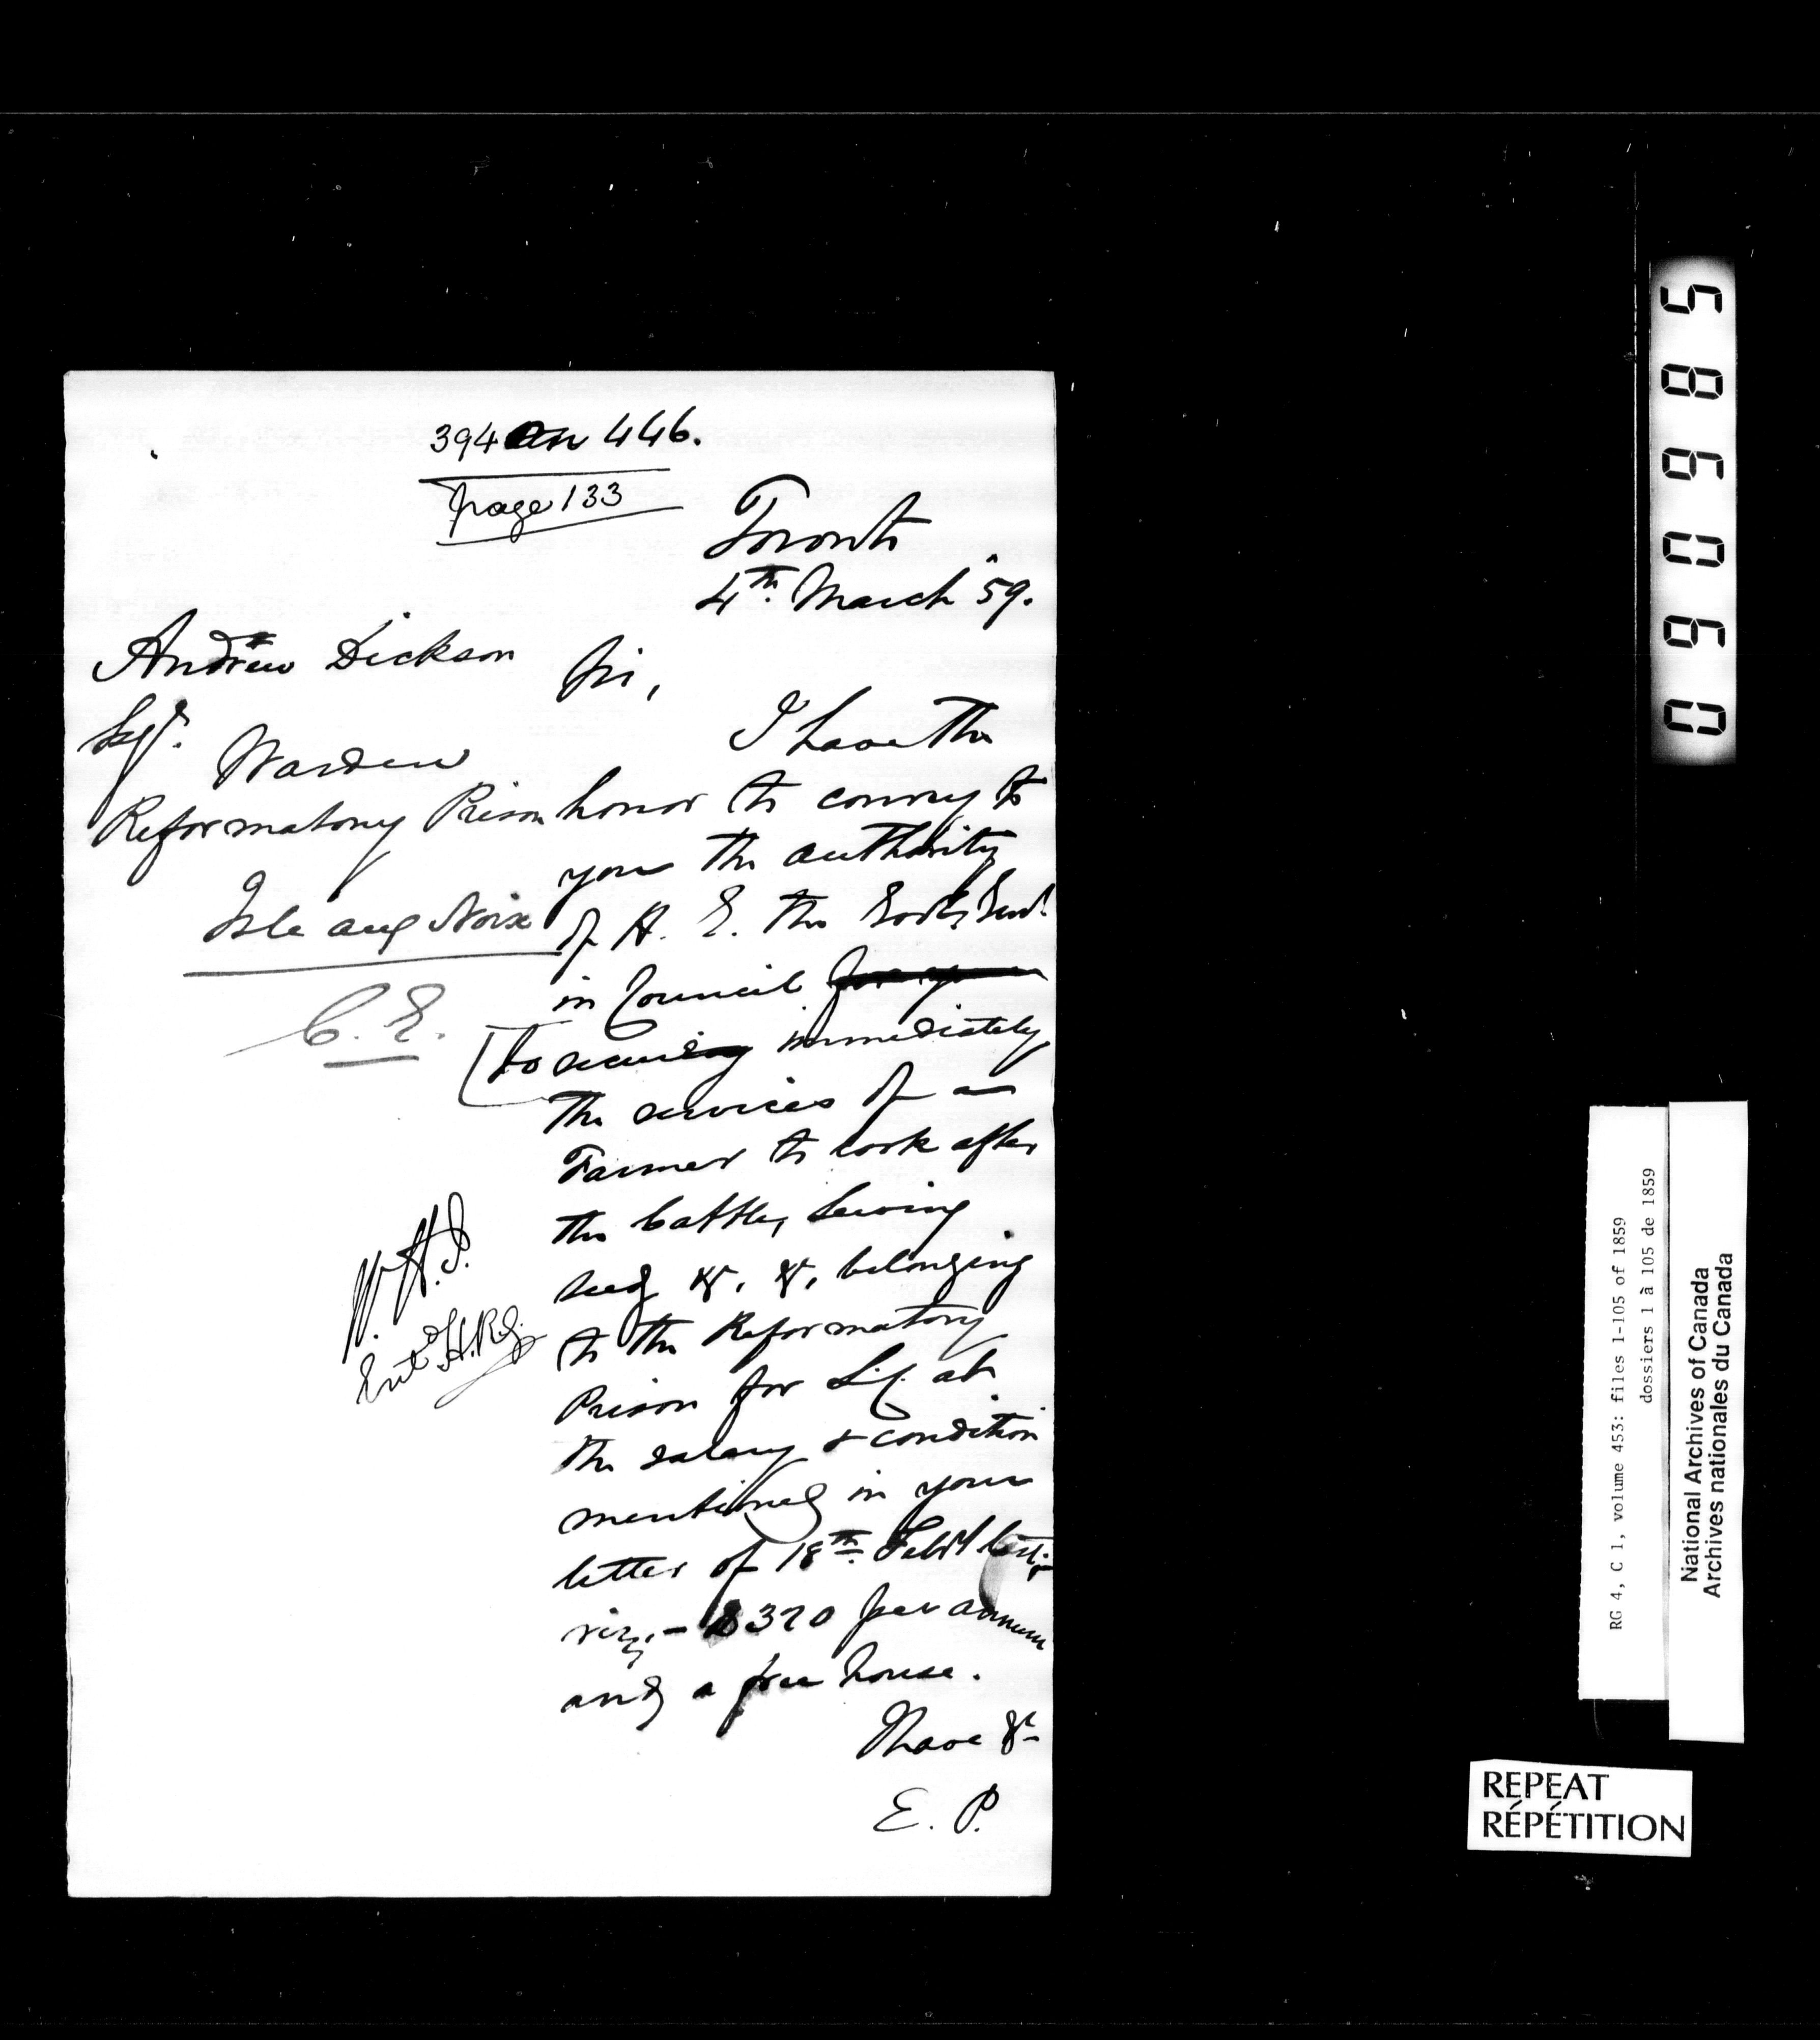 394 on 446.
page 133
Toronto
4th. March '59.
Andrew Dickson
Esqr.
Warden
Reformatory Prison
Isle aux Noix
C. E.
Sir,
I have the
honor to convey to
you the authority
of H. E. the Govr. Genl.
in Council for you
to securing immediately
the services of a
Farmer to look after
the Cattle, Sowing
seed &c, &c, belonging
to the Reformatory
Prison for L.C. at
the salary & condition
mentioned in your
letter of 18th. Feby last;
viz, – $320 per annum
and a free house.
I have &c
E. P.
W. H. J.
Entd H.R.J.
09.0985
RG 4, C 1, volume 453: files 1-105 of 1859
dossiers 1 à 105 de 1859
National Archives of Canada
Archives nationales du Canada
REPEAT
RÉPÉTITION